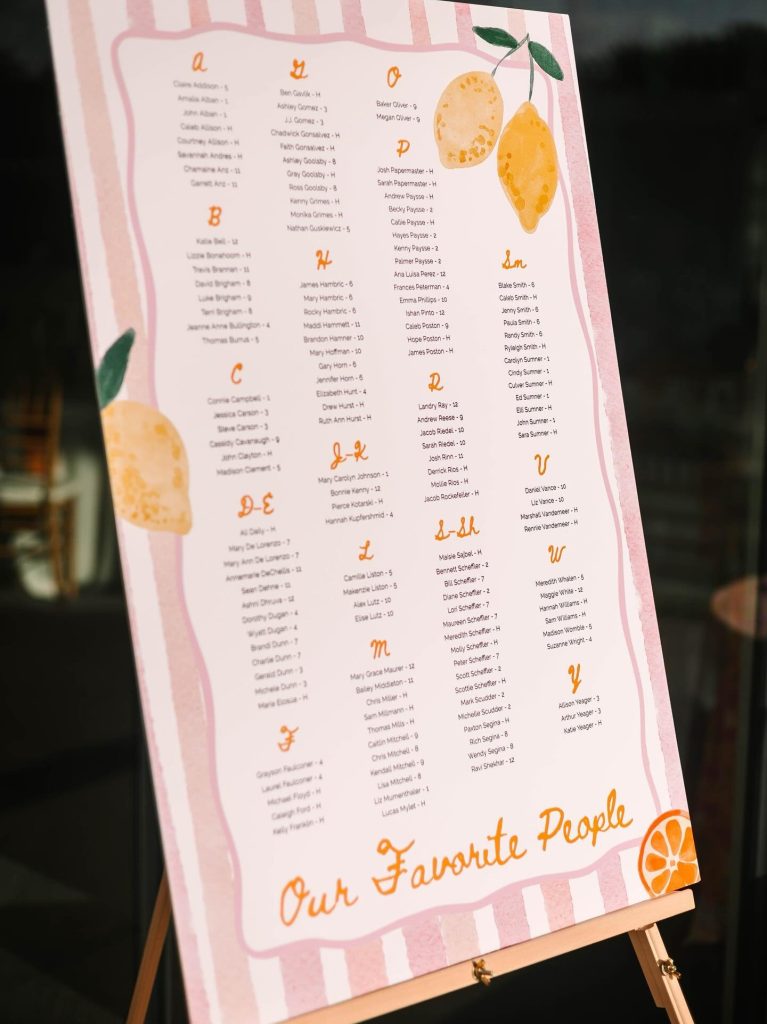 A
Claire Addison - 5
Amalia Alban - 1
John Alban - 1
Caleb Allison - H
Courtney Allison - H
Savannah Andres - H
Chamaine Anz - 11
Garrett Anz - 11
B
Katie Bell - 12
Lizzie Bonahoom - H
Travis Brannan - 11
David Brigham - 8
Luke Brigham - 9
Terri Brigham - 8
Jeanne Anne Bullington - 4
Thomas Burrus - 5
C
Connie Campbell - 1
Jessica Carson - 3
Steve Carson - 3
Cassidy Cavanaugh - 9
John Clayton - H
Madison Clement - 5
D-E
Ali Daily - H
Mary De Lorenzo - 7
Mary Ann De Lorenzo - 7
Annemarie DeChellis - 11
Sean Dehne - 11
Ashni Dhruva - 12
Dorothy Dugan - 4
Wyatt Dugan - 4
Brandi Dunn - 7
Charlie Dunn - 7
Gerald Dunn - 3
Michele Dunn - 3
Maria Elosua - H
F
Grayson Faulconer - 4
Laurel Faulconer - 4
Michael Floyd - H
Caleigh Ford - H
Kelly Franklin - H
G
Ben Gavlik - H
Ashley Gomez - 3
J.J. Gomez - 3
Chadwick Gonsalvez - H
Faith Gonsalvez - H
Ashley Goolsby - 8
Gray Goolsby - H
Ross Goolsby - 8
Kenny Grimes - H
Monika Grimes - H
Nathan Guskiewicz - 5
H
James Hambric - 6
Mary Hambric - 6
Rocky Hambric - 6
Maddi Hammett - 11
Brandon Hamner - 10
Mary Hoffman - 10
Gary Horn - 6
Jennifer Horn - 6
Elizabeth Hunt - 4
Drew Hurst - H
Ruth Ann Hurst - H
J-K
Mary Carolyn Johnson - 1
Bonnie Kenny - 12
Pierce Kotarski - H
Hannah Kupfershmid - 4
L
Camille Liston - 5
Makenzie Liston - 5
Alex Lutz - 10
Elise Lutz - 10
M
Mary Grace Maurer - 12
Bailey Middleton - 11
Chris Miller - H
Sam Millmann - H
Thomas Mills - H
Caitlin Mitchell - 9
Chris Mitchell - 8
Kendall Mitchell - 9
Lisa Mitchell - 8
Liz Mumenthaler - 1
Lucas Mylet - H
O
Baker Oliver - 9
Megan Oliver - 9
P
Josh Papermaster - H
Sarah Papermaster - H
Andrew Paysse - H
Becky Paysse - 2
Callie Paysse - H
Hayes Paysse - 2
Kenny Paysse - 2
Palmer Paysse - 2
Ana Luisa Perez - 12
Frances Peterman - 4
Emma Phillips - 10
Ishan Pinto - 12
Caleb Poston - 9
Hope Poston - H
James Poston - H
R
Landry Ray - 12
Andrew Reese - 9
Jacob Riedel - 10
Sarah Riedel - 10
Josh Rinn - 11
Derrick Rios - H
Mollie Rios - H
Jacob Rockefeller - H
S-Sh
Maisie Sajbel - H
Bennett Scheffler - 2
Bill Scheffler - 7
Diane Scheffler - 2
Lori Scheffler - 7
Maureen Scheffler - 7
Meredith Scheffler - H
Molly Scheffler - H
Peter Scheffler - 7
Scott Scheffler - 2
Scottie Scheffler - H
Mark Scudder - 2
Michelle Scudder - 2
Paxton Segina - H
Rich Segina - 8
Wendy Segina - 8
Ravi Shekhar - 12
Sm
Blake Smith - 6
Caleb Smith - H
Jenny Smith - 6
Paula Smith - 6
Randy Smith - 6
Ryleigh Smith - H
Carolyn Sumner - 1
Cindy Sumner - 1
Culver Sumner - H
Ed Sumner - 1
Elli Sumner - H
John Sumner - 1
Sara Sumner - H
V
Daniel Vance - 10
Liz Vance - 10
Marshall Vandemeer - H
Rennie Vandemeer - H
W
Meredith Whalen - 5
Maggie White - 12
Hannah Williams - H
Sam Williams - H
Madison Womble - 5
Suzanne Wright - 4
Y
Allison Yeager - 3
Arthur Yeager - 3
Katie Yeager - H
Our Favorite People